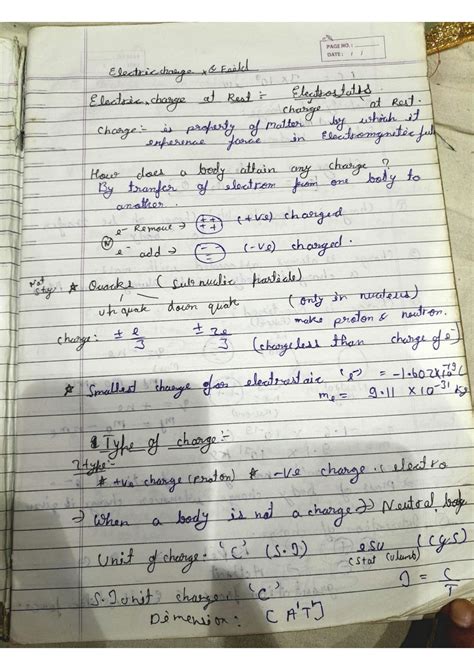 PAGE NO.:
DATE: / /
Electric charge & Field
Electric charge at Rest :- Electrostatis
charge at Rest.
Charge:- is property of Matter by which it
experence force in Electromgnetic
How does a body attain any charge ?
By tranfer of electrom from one body to
another.
e- Remove → ++ ++ (+ve) charged
(N)
e- add → - - (-ve) charged.
Not
Stdy
* Quacks ( Sub nuclic particle)
up quak down quak ( only in nucleus)
make proton & neutron.
charge: ± e/3 ± 2e/3 (charge less than charge of e-)
* Smallest charge electrostaic (e-) = -1.602x10-19 C
me = 9.11 x 10-31 kg
Type of charge:-
2 type-
* +ve charge (proton) * -ve charge electro
⇒ When a body is not a charge ⇒ Neutral body
Unit of charge. 'C' (S.I) esu (CGS)
(Stat Culumb)
S.I unit charge 'C' I = C/T
Dimension: [A¹T¹]